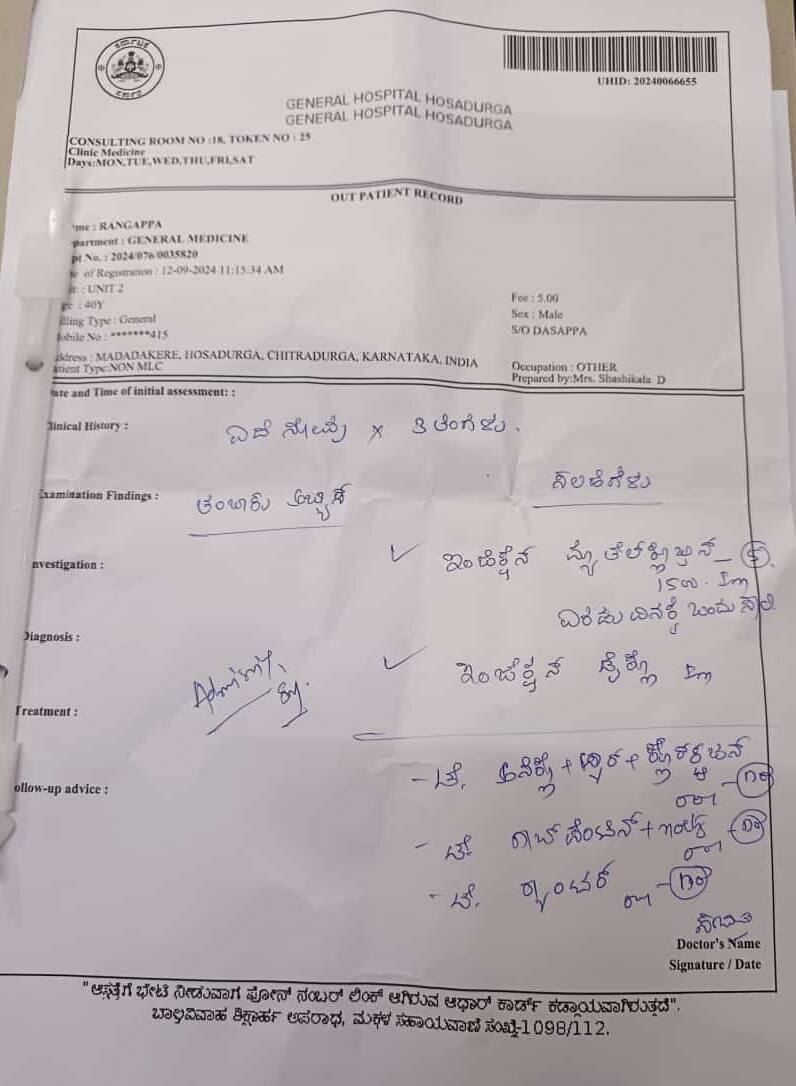 ಕರ್ನಾಟಕ
ಸರ್ಕಾರ
UHID: 20240066655
GENERAL HOSPITAL HOSADURGA
GENERAL HOSPITAL HOSADURGA
CONSULTING ROOM NO :18, TOKEN NO : 25
Clinic Medicine
Days:MON,TUE,WED,THU,FRI,SAT
OUT PATIENT RECORD
me : RANGAPPA
partment : GENERAL MEDICINE
pt No. : 2024/076/0035820
e of Registration : 12-09-2024 11:15:34 AM
: UNIT 2
Fee : 5.00
ge : 40Y
Sex : Male
illing Type : General
S/O DASAPPA
obile No : *******415
ddress : MADADAKERE, HOSADURGA, CHITRADURGA, KARNATAKA, INDIA
Occupation : OTHER
atient Type:NON MLC
Prepared by:Mrs. Shashikala D
ate and Time of initial assessment: :
linical History :
ಎದೆ ನೋವು x 3 ತಿಂಗಳು.
Examination Findings :
ತಂಬಾಕು
ಸಲಹೆಗಳು
nvestigation :
ಇಂಜೆಕ್ಷನ್
Im
ಎರಡು ದಿನಕ್ಕೆ ಒಂದು ಸಾರಿ
Diagnosis :
ಇಂಜೆಕ್ಷನ್ ಡೈಕ್ಲೊ Im
Treatment :
ollow-up advice :
- ಟೆ.
- ಟೆ.
- ಟೆ.
Doctor's Name
Signature / Date
"ಆಸ್ಪತ್ರೆಗೆ ಭೇಟಿ ನೀಡುವಾಗ ಫೋನ್ ನಂಬರ್ ಲಿಂಕ್ ಆಗಿರುವ ಆಧಾರ್ ಕಾರ್ಡ್ ಕಡ್ಡಾಯವಾಗಿರುತ್ತದೆ".
ಬಾಲ್ಯವಿವಾಹ ಶಿಕ್ಷಾರ್ಹ ಅಪರಾಧ, ಮಕ್ಕಳ ಸಹಾಯವಾಣಿ ಸಂಖ್ಯೆ-1098/112.